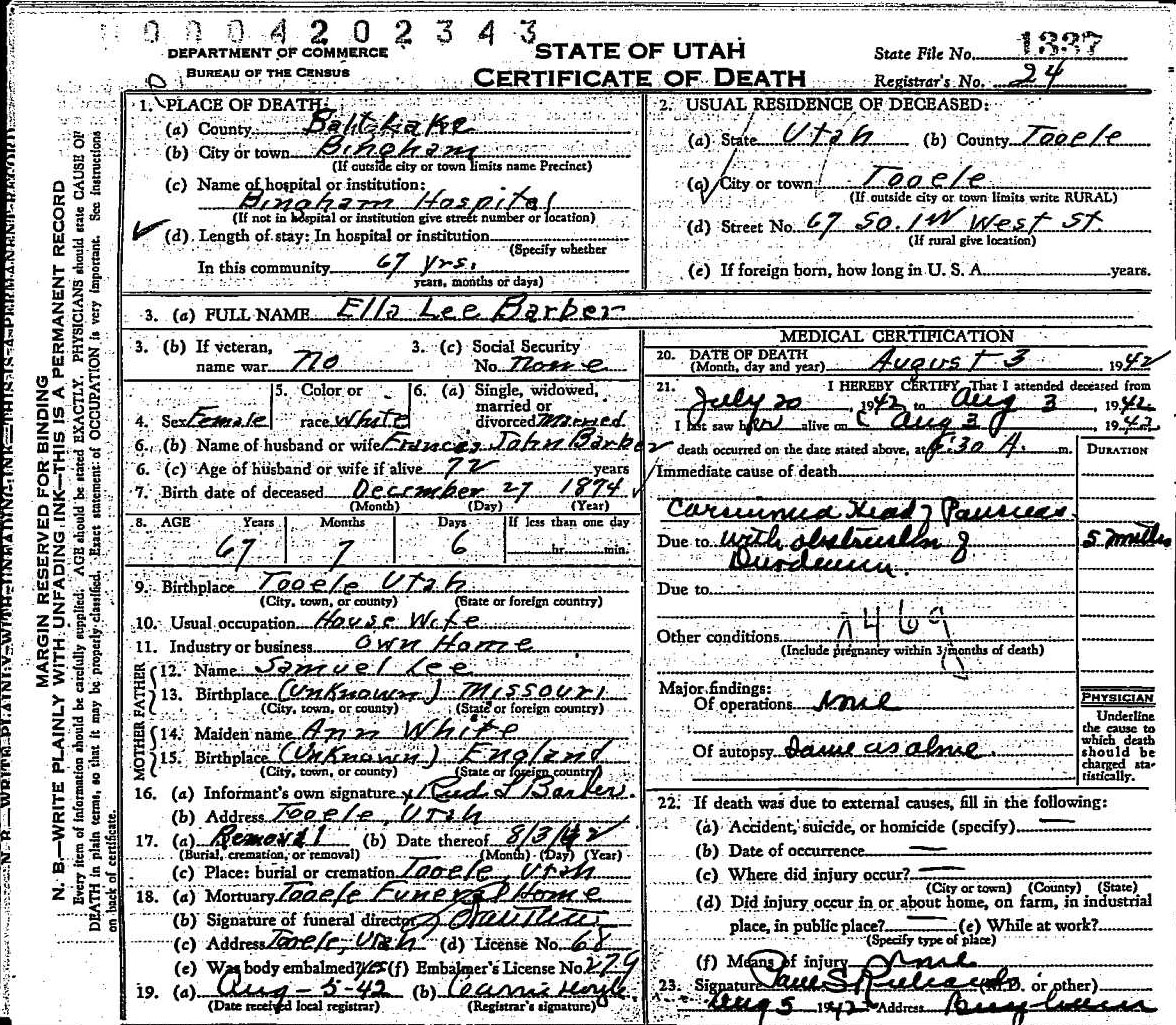 0004202343
DEPARTMENT OF COMMERCE
BUREAU OF THE CENSUS
STATE OF UTAH
CERTIFICATE OF DEATH
State File No. 1337
Registrar's No. 24
MARGIN RESERVED FOR BINDING
N. B.—WRITE PLAINLY WITH UNFADING INK—THIS IS A PERMANENT RECORD
Every item of information should be carefully supplied. AGE should be stated EXACTLY. PHYSICIANS should state CAUSE OF
DEATH in plain terms, so that it may be properly classified. Exact statement of OCCUPATION is very important. See Instructions
on back of certificate.
1. PLACE OF DEATH:
(a) County Salt Lake
(b) City or town Bingham
(If outside city or town limits name Precinct)
(c) Name of hospital or institution:
Bingham Hospital
(If not in hospital or institution give street number or location)
(d) Length of stay: In hospital or institution
(Specify whether
In this community 67 yrs.
years, months or days)
2. USUAL RESIDENCE OF DECEASED:
(a) State Utah (b) County Tooele
(c) City or town Tooele
(If outside city or town limits write RURAL)
(d) Street No. 67 So. 1st West St.
(If rural give location)
(e) If foreign born, how long in U. S. A. years.
3. (a) FULL NAME Ella Lee Barber
3. (b) If veteran, name war No
3. (c) Social Security No. None
4. Sex Female
5. Color or race White
6. (a) Single, widowed, married or divorced Married
6. (b) Name of husband or wife Frances John Barber
6. (c) Age of husband or wife if alive 72 years
7. Birth date of deceased December 27 1874
(Month) (Day) (Year)
8. AGE Years Months Days If less than one day
67 7 6 hr. min.
9. Birthplace Tooele Utah
(City, town, or county) (State or foreign country)
10. Usual occupation House Wife
11. Industry or business Own Home
FATHER
12. Name Samuel Lee
13. Birthplace (Unknown) Missouri
(City, town, or county) (State or foreign country)
MOTHER
14. Maiden name Ann White
15. Birthplace (Unknown) England
(City, town, or county) (State or foreign country)
16. (a) Informant's own signature Barber
(b) Address Tooele, Utah
17. (a) Removal (b) Date thereof 8/3/42
(Burial, cremation, or removal) (Month) (Day) (Year)
(c) Place: burial or cremation Tooele, Utah
18. (a) Mortuary Tooele Funeral Home
(b) Signature of funeral director
(c) Address Tooele, Utah (d) License No. 68
(e) Was body embalmed? Yes (f) Embalmer's License No. 279
19. (a) Aug-5-42 (b) Carrie
(Date received local registrar) (Registrar's signature)
MEDICAL CERTIFICATION
20. DATE OF DEATH August 3 1942
(Month, day and year)
21. I HEREBY CERTIFY, That I attended deceased from
July 20 1942 to Aug 3 1942
I last saw her alive on Aug 3 1942
death occurred on the date stated above, at 8:30 A. m.
DURATION
Immediate cause of death
Carcinoma Head of Pancreas
Due to with obstruction of 5 months
Duodenum.
Due to
Other conditions
(Include pregnancy within 3 months of death)
Major findings:
Of operations none
Of autopsy same as above
PHYSICIAN
Underline
the cause to
which death
should be
charged sta-
tistically.
22. If death was due to external causes, fill in the following:
(a) Accident, suicide, or homicide (specify) —
(b) Date of occurrence —
(c) Where did injury occur? —
(City or town) (County) (State)
(d) Did injury occur in or about home, on farm, in industrial
place, in public place? — (e) While at work?
(Specify type of place)
(f) Means of injury none
23. Signature Paul S. Richards (M.D. or other)
Aug 5 1942 Address Bingham